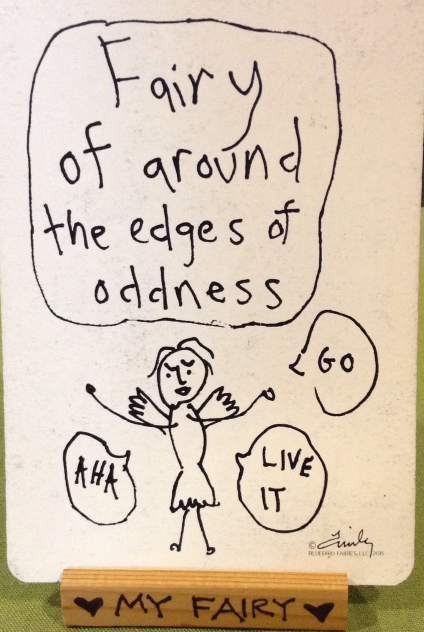 Fairy
of around
the edges of
oddness
GO
AHA
LIVE
IT
© Emily
BLUEBIRD FAIRIES, LLC 2015
MY FAIRY